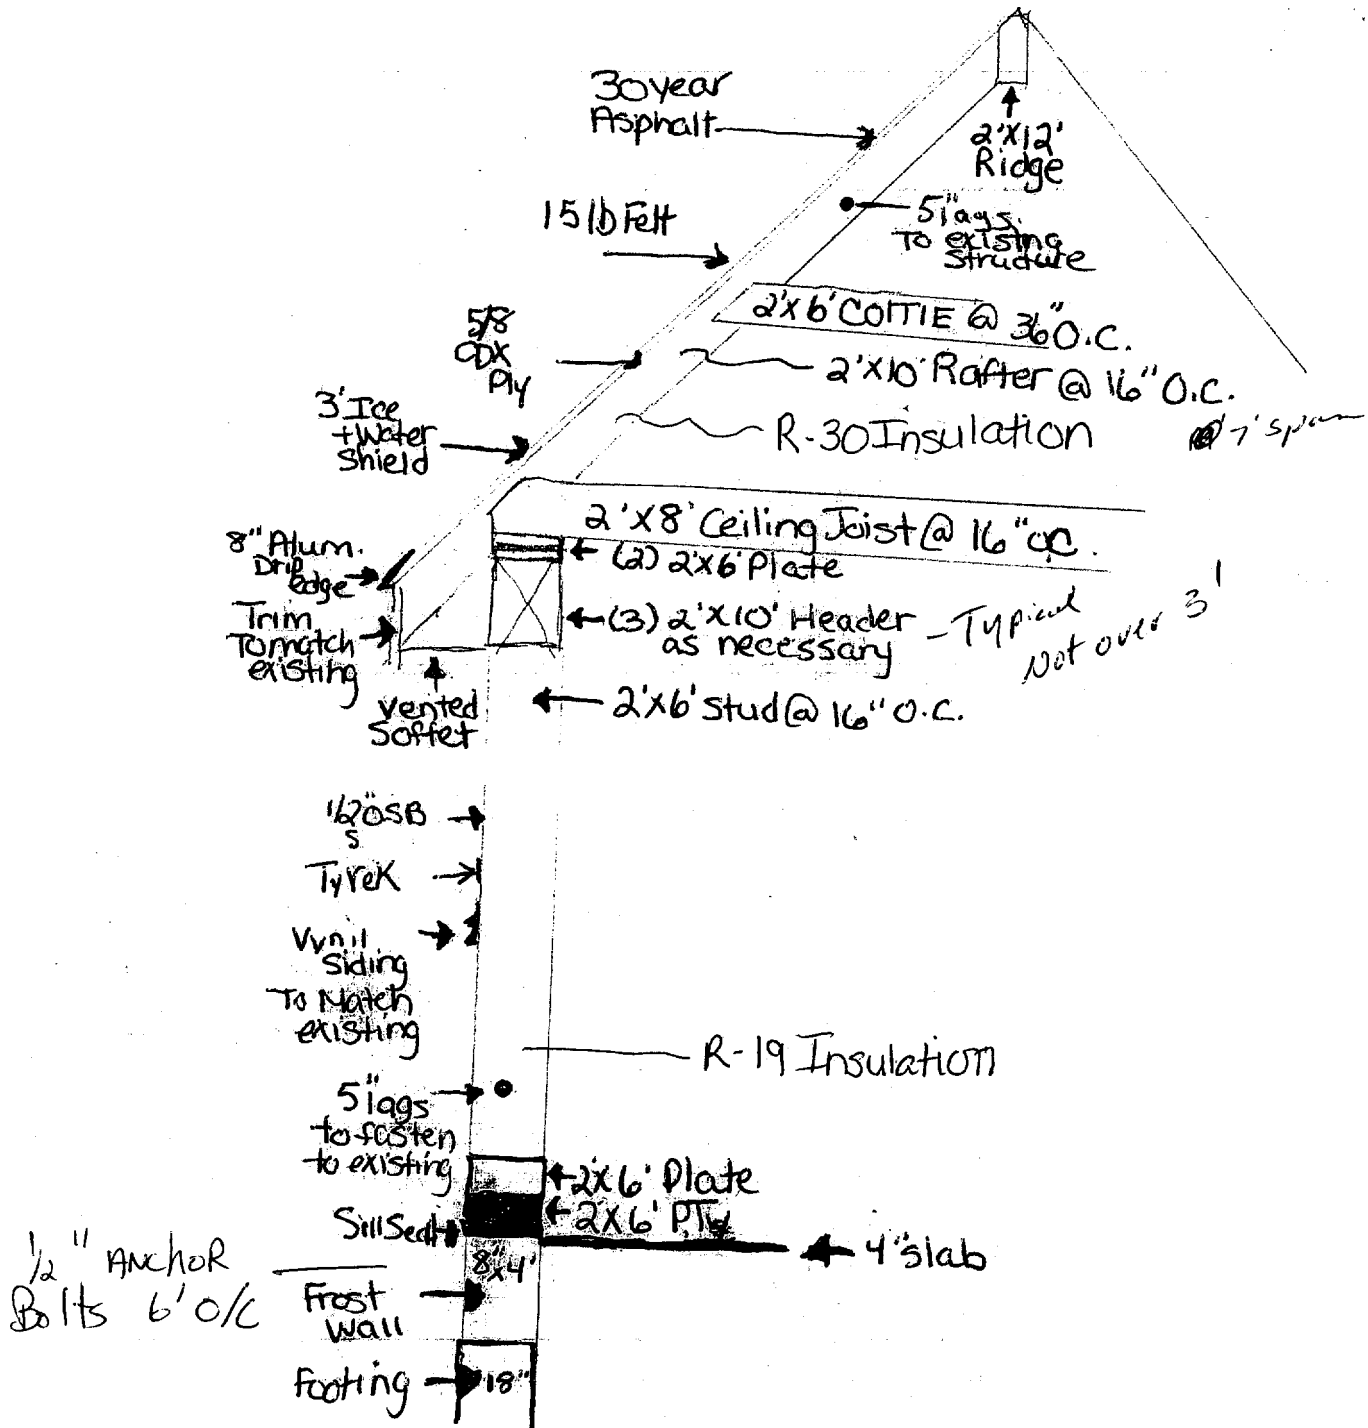 30 year
Asphalt
2'x12'
Ridge
15 lb Felt
5" lags
To existing
structure
2'x6' COlTIE @ 36" O.C.
5/8
CDX
Ply
2'x10' Rafter @ 16" O.C.
7' span
3' Ice
+ Water
Shield
R-30 Insulation
2'x8' Ceiling Joist @ 16" O.C.
8" Alum.
Drip
edge
(2) 2'x6' Plate
Trim
To match
existing
(3) 2'x10' Header
as necessary
- Typical
Not over 3'
vented
Soffet
2'x6' stud @ 16" O.C.
1/2" OSB
s
TyveK
Vynil
Siding
To Match
existing
R-19 Insulation
5" lags
to fasten
to existing
2'x6' Plate
2'x6' PT
Sill Seal
4" slab
8"x4'
1/2" ANchoR
Bolts 6' O/C
Frost
Wall
Footing
18"